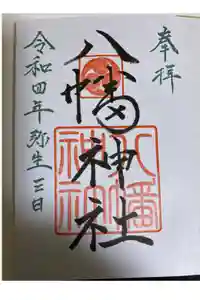 奉拝
八幡神社
八幡神社
令和四年弥生三日